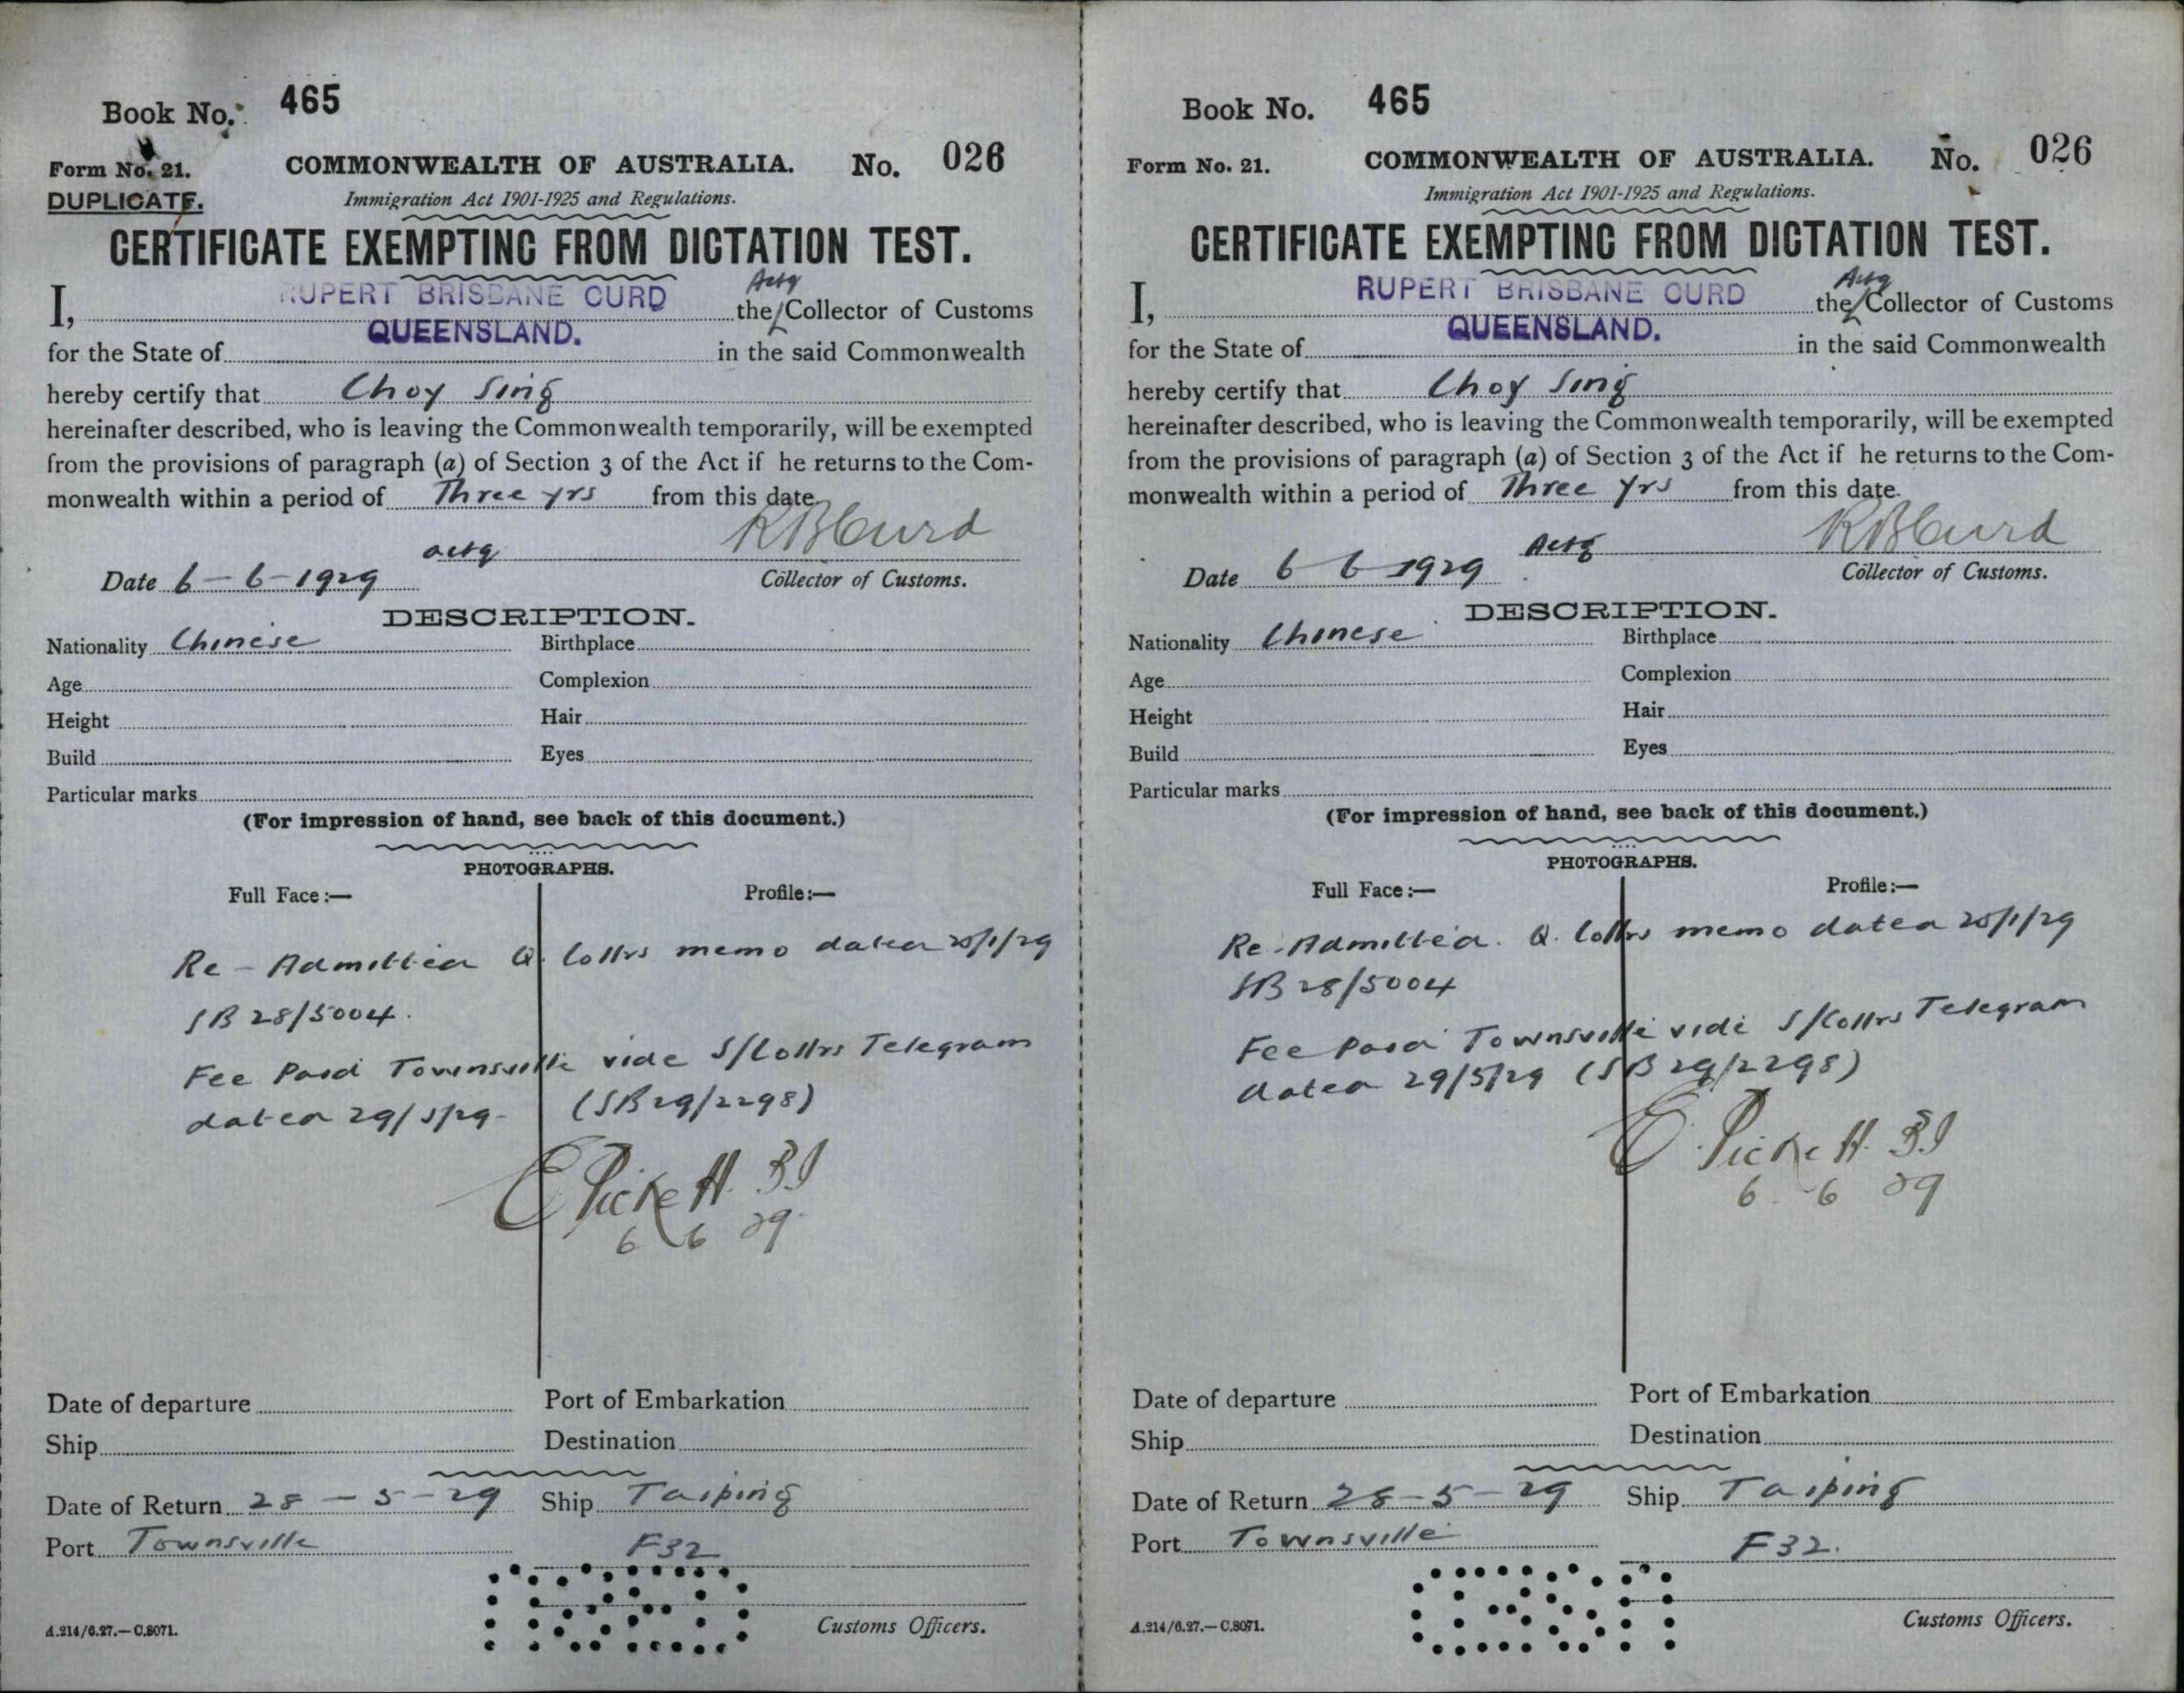 Book No. 465
Form No. 21. COMMONWEALTH OF AUSTRALIA. No. 026
DUPLICATE. Immigration Act 1901-1925 and Regulations.
CERTIFICATE EXEMPTING FROM DICTATION TEST.
I, RUPERT BRISBANE CURD the Actg Collector of Customs
for the State of QUEENSLAND. in the said Commonwealth
hereby certify that Choy Sing
hereinafter described, who is leaving the Commonwealth temporarily, will be exempted
from the provisions of paragraph (a) of Section 3 of the Act if he returns to the Com-
monwealth within a period of Three yrs from this date.
actg R B Curd
Date 6-6-1929 Collector of Customs.
DESCRIPTION.
Nationality Chinese Birthplace
Age Complexion
Height Hair
Build Eyes
Particular marks
(For impression of hand, see back of this document.)
PHOTOGRAPHS.
Full Face:— Profile:—
Re-Admitted Q. Collrs memo dated 25/1/29
SB 28/5004.
Fee Paid Townsville vide S/Collrs Telegram
dated 29/5/29- (SB29/2298)
E Pickett. BI
6 6 29.
Date of departure Port of Embarkation
Ship Destination
Date of Return 28-5-29 Ship Taiping
Port Townsville F32
Customs Officers.
A.214/6.27.—C.8071.
Book No. 465
Form No. 21. COMMONWEALTH OF AUSTRALIA. No. 026
Immigration Act 1901-1925 and Regulations.
CERTIFICATE EXEMPTING FROM DICTATION TEST.
I, RUPERT BRISBANE CURD the Actg Collector of Customs
for the State of QUEENSLAND. in the said Commonwealth
hereby certify that Choy Sing
hereinafter described, who is leaving the Commonwealth temporarily, will be exempted
from the provisions of paragraph (a) of Section 3 of the Act if he returns to the Com-
monwealth within a period of Three Yrs from this date.
Actg R B Curd
Date 6 6 1929 Collector of Customs.
DESCRIPTION.
Nationality Chinese Birthplace
Age Complexion
Height Hair
Build Eyes
Particular marks
(For impression of hand, see back of this document.)
PHOTOGRAPHS.
Full Face:— Profile:—
Re-Admitted. Q. Collrs memo dated 25/1/29
SB 28/5004
Fee Paid Townsville vide S/Collrs Telegram
dated 29/5/29 (SB 29/2298)
E. Pickett. BI
6-6 29
Date of departure Port of Embarkation
Ship Destination
Date of Return 28-5-29 Ship Taiping
Port Townsville F32.
Customs Officers.
A.214/6.27.—C.8071.